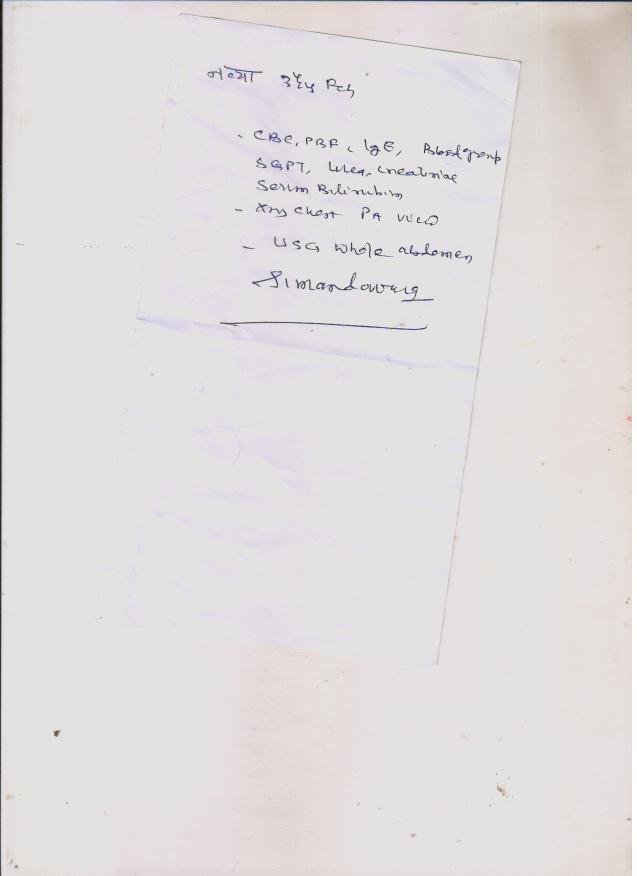 नव्या
- CBC, PBF, IgE, Blood group
SGPT, Urea, creatinine
Serum Bilirubin
- Xray chest PA view
- USG whole abdomen